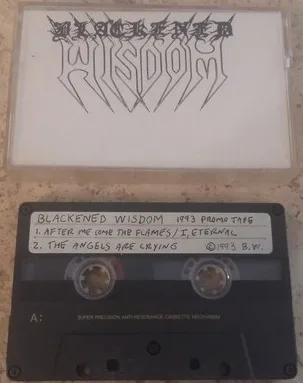 BLACKENED
WISDOM
BLACKENED WISDOM 1993 PROMO TAPE
1. AFTER ME COME THE FLAMES / I, ETERNAL
2. THE ANGELS ARE CRYING ©1993 B.W.
A:
SUPER PRECISION ANTI-RESONANCE CASSETTE MECHANISM